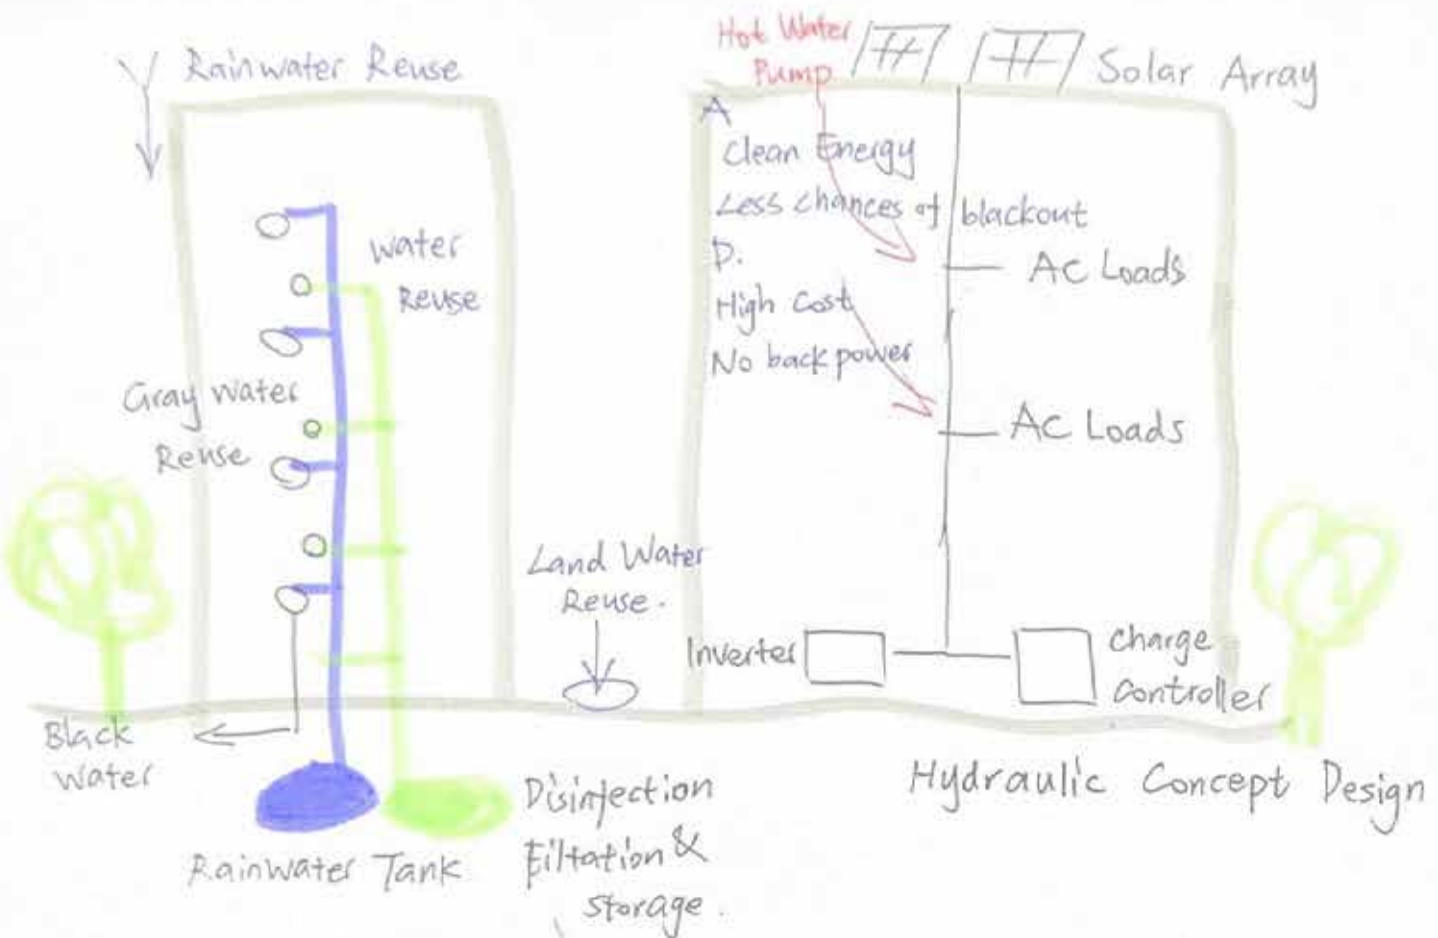 Rainwater Reuse
Water
Reuse
Gray Water
Reuse
Black
Water
Rainwater Tank
Disinfection
Filtation &
Storage.
Land Water
Reuse.
Hot Water
Pump
Solar Array
A
Clean Energy
Less chances of blackout
D.
High Cost
No back power
AC Loads
AC Loads
Inverter
Charge
Controller
Hydraulic Concept Design